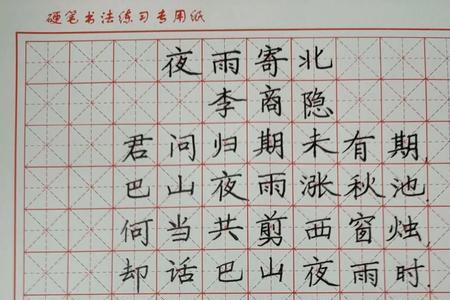 硬笔书法练习专用纸
夜雨寄北
李商隐
君问归期未有期.
巴山夜雨涨秋池.
何当共剪西窗烛.
却话巴山夜雨时.